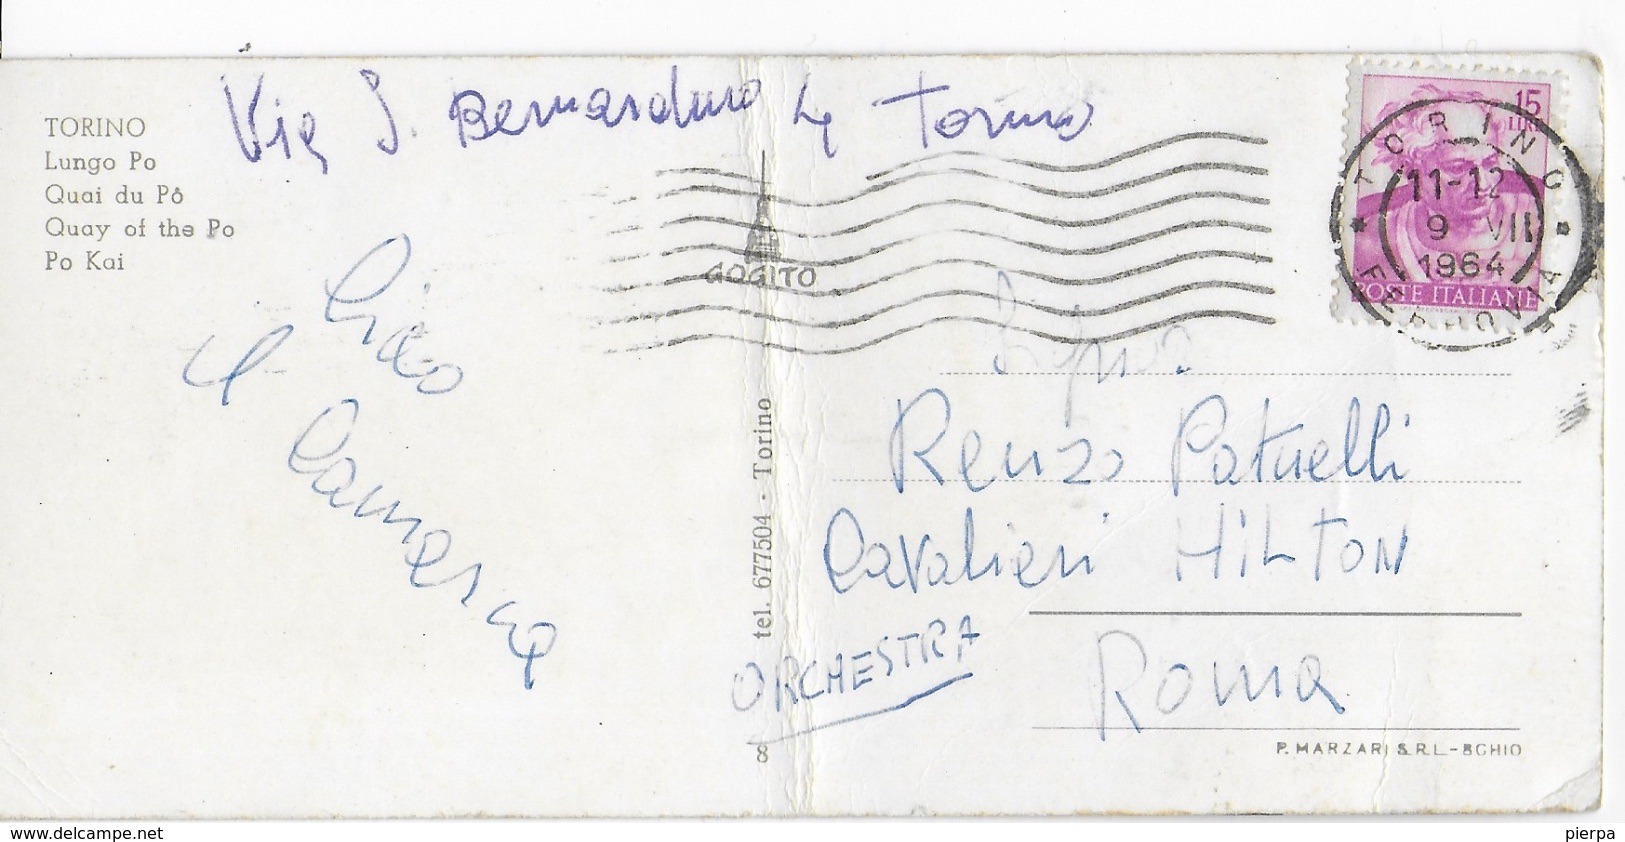 Via S. Bernardino 4 Torino
TORINO
Lungo Po
Quai du Pô
Quay of the Po
Po Kai
Ciao
COGITO
15
LIRE
TORINO
11-12
9 VII
1964
FERROVIA
POSTE ITALIANE
Renzo Patuelli
Cavalieri HILTON
ORCHESTRA
Roma
8
tel. 677504 - Torino
P. MARZARI S.R.L.-SCHIO
www.delcampe.net
pierpa